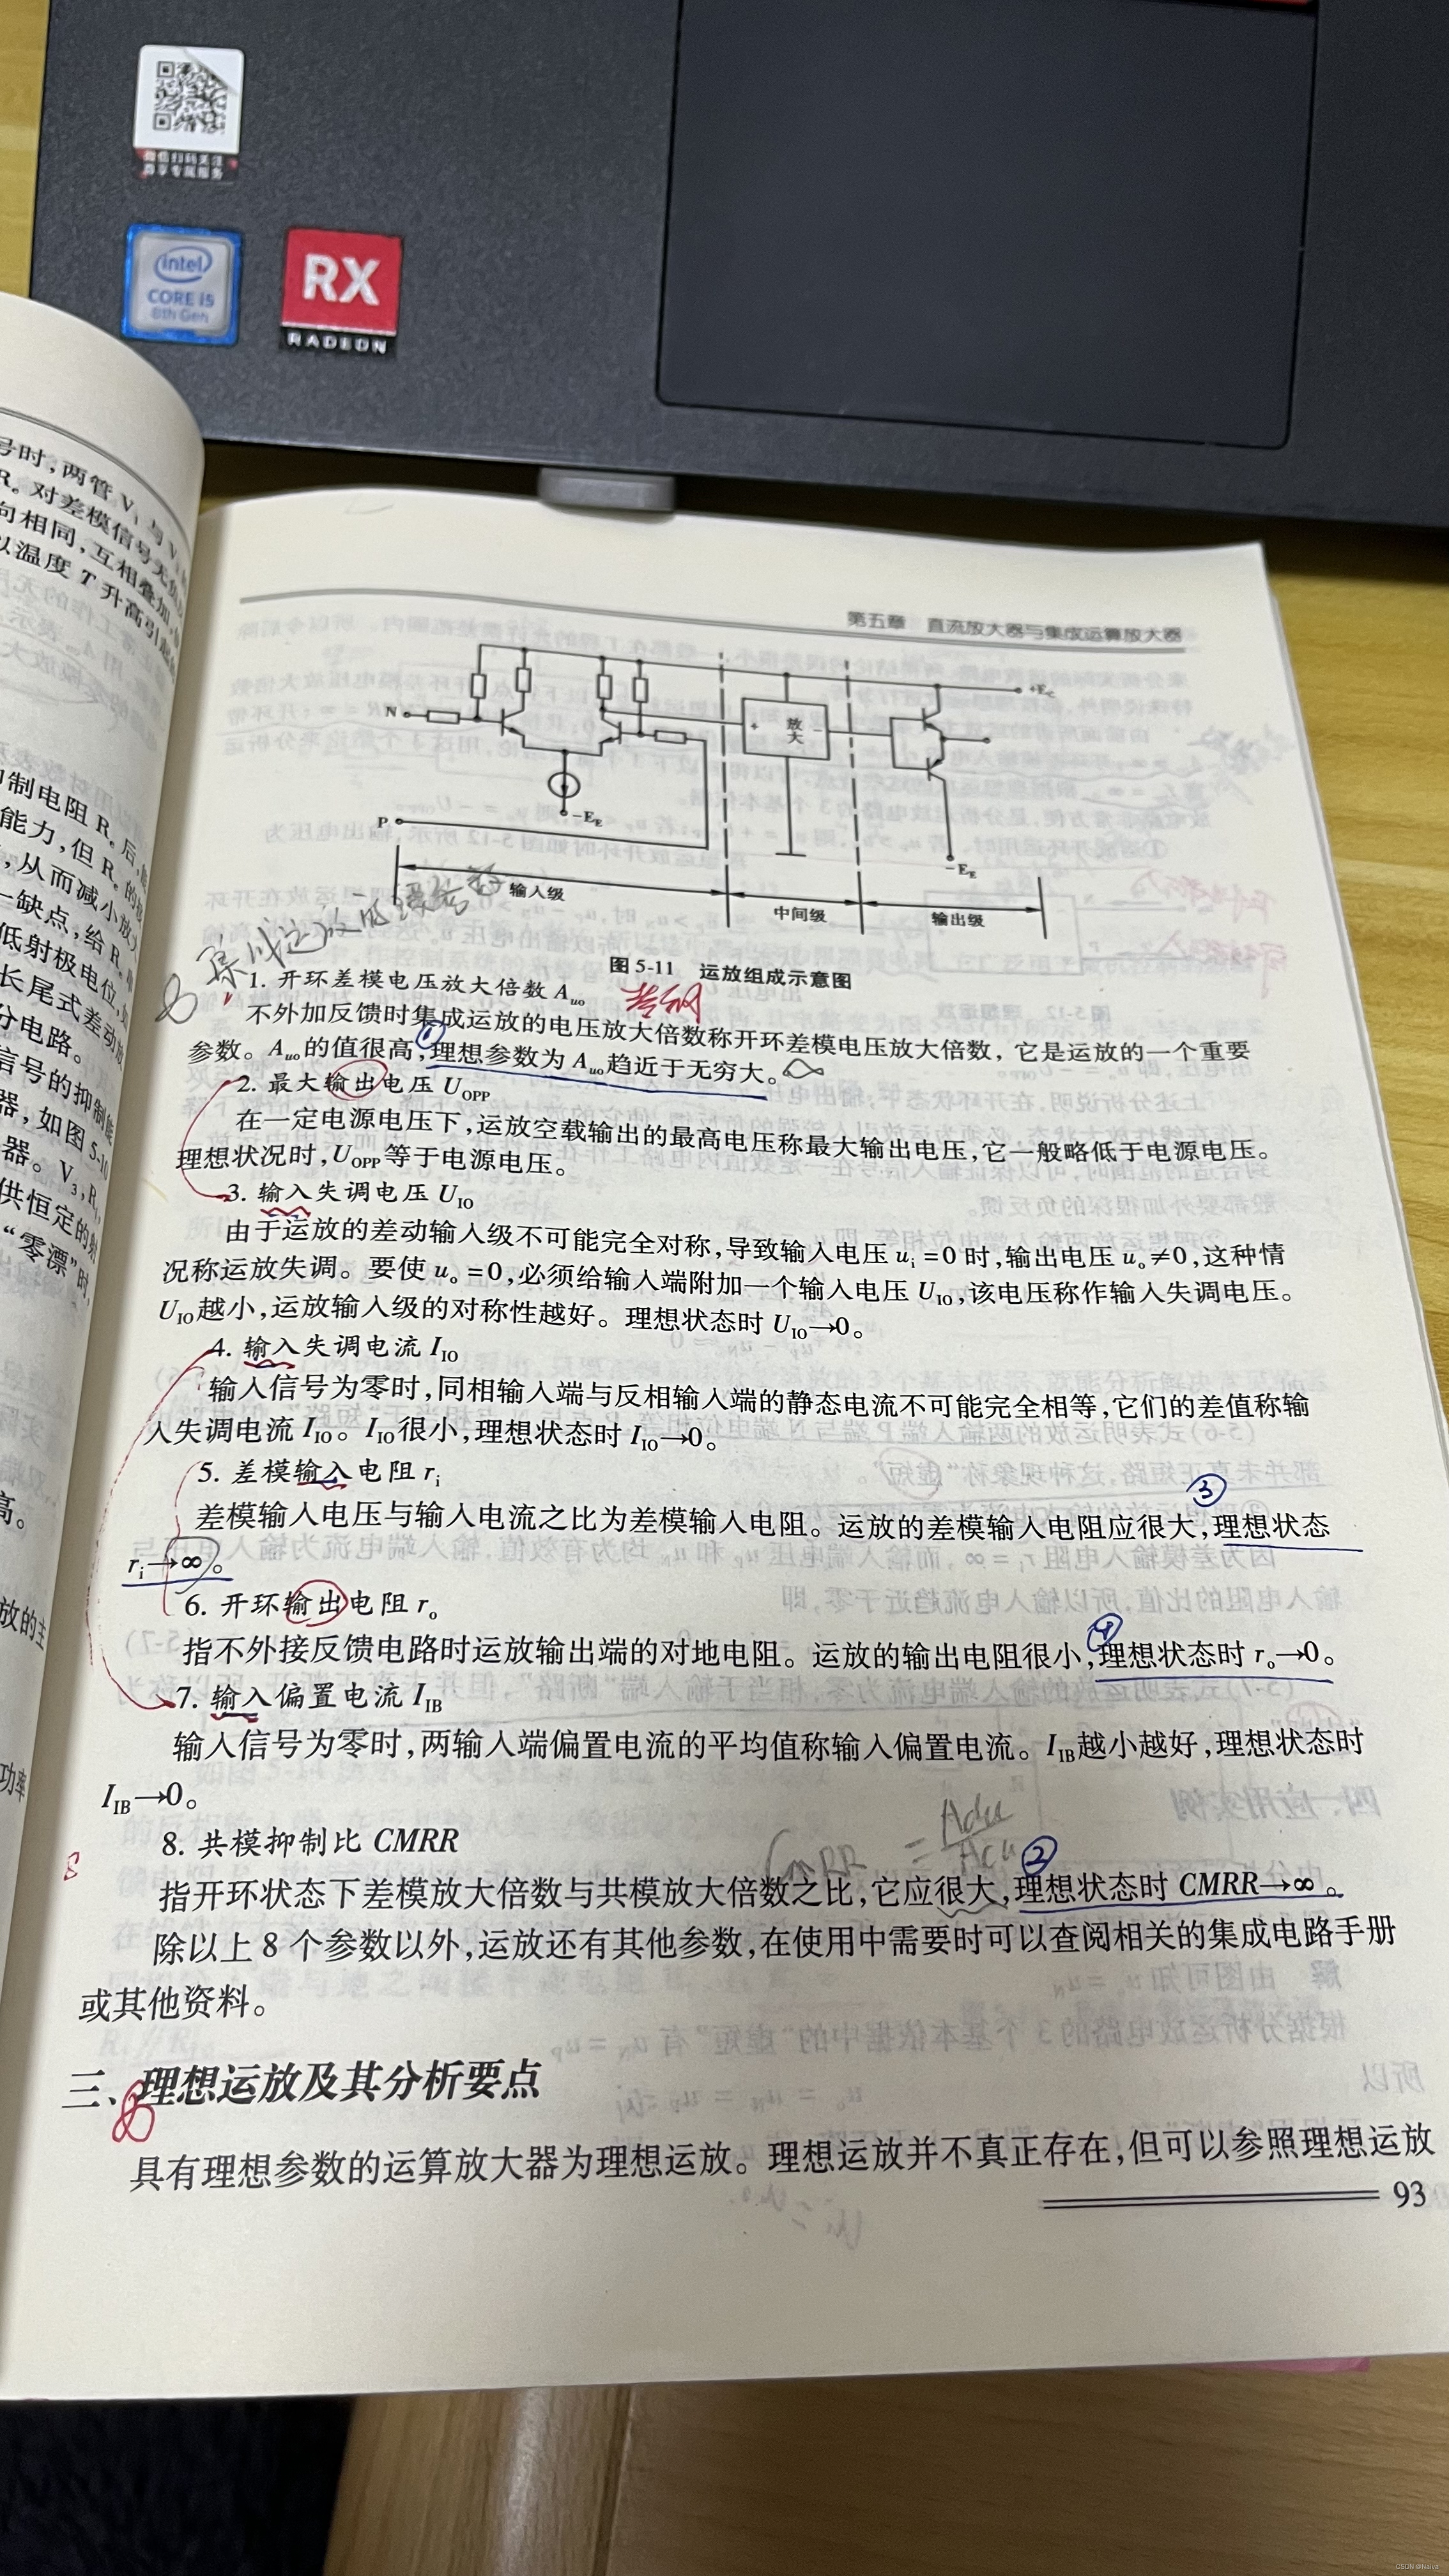 微信扫码关注
尊享专属服务
intel
CORE i5
8th Gen
RX
RADEON
号时,两管 V₁ 与 V
R。对差模信号无
向相同,互相叠加
以温度 T 升高引起
抑制电阻 Rₑ 后,
能力,但 Rₑ 的
,从而减小放大
一缺点,给 Rₑ
低射极电位,
长尾式差动放
分电路。
信号的抑制能
器,如图 5-10
器。V₃,R
供恒定的射
“零漂”时,
高。
放的主
功率
第五章 直流放大器与集成运算放大器
N
P
+E_C
放大
+
−
−E_E
−E_E
输入级
中间级
输出级
图 5-11 运放组成示意图
集成运放的
1. 开环差模电压放大倍数 A_uo
不外加反馈时集成运放的电压放大倍数称开环差模电压放大倍数, 它是运放的一个重要
①
参数。A_uo 的值很高,理想参数为 A_uo 趋近于无穷大。
2. 最大输出电压 U_OPP
在一定电源电压下,运放空载输出的最高电压称最大输出电压,它一般略低于电源电压。
理想状况时,U_OPP 等于电源电压。
3. 输入失调电压 U_IO
由于运放的差动输入级不可能完全对称,导致输入电压 u_i =0 时,输出电压 u_o≠0,这种情
况称运放失调。要使 u_o =0,必须给输入端附加一个输入电压 U_IO,该电压称作输入失调电压。
U_IO 越小,运放输入级的对称性越好。理想状态时 U_IO→0。
4. 输入失调电流 I_IO
输入信号为零时,同相输入端与反相输入端的静态电流不可能完全相等,它们的差值称输
入失调电流 I_IO。I_IO 很小,理想状态时 I_IO→0。
5. 差模输入电阻 r_i
③
差模输入电压与输入电流之比为差模输入电阻。运放的差模输入电阻应很大,理想状态
r_i→∞。
6. 开环输出电阻 r_o
④
指不外接反馈电路时运放输出端的对地电阻。运放的输出电阻很小,理想状态时 r_o→0。
7. 输入偏置电流 I_IB
输入信号为零时,两输入端偏置电流的平均值称输入偏置电流。I_IB 越小越好,理想状态时
I_IB→0。
8. 共模抑制比 CMRR
CMRR = Adu / Acu
②
8
指开环状态下差模放大倍数与共模放大倍数之比,它应很大,理想状态时 CMRR→∞。
除以上 8 个参数以外,运放还有其他参数,在使用中需要时可以查阅相关的集成电路手册
或其他资料。
三、理想运放及其分析要点
具有理想参数的运算放大器为理想运放。理想运放并不真正存在,但可以参照理想运放
93